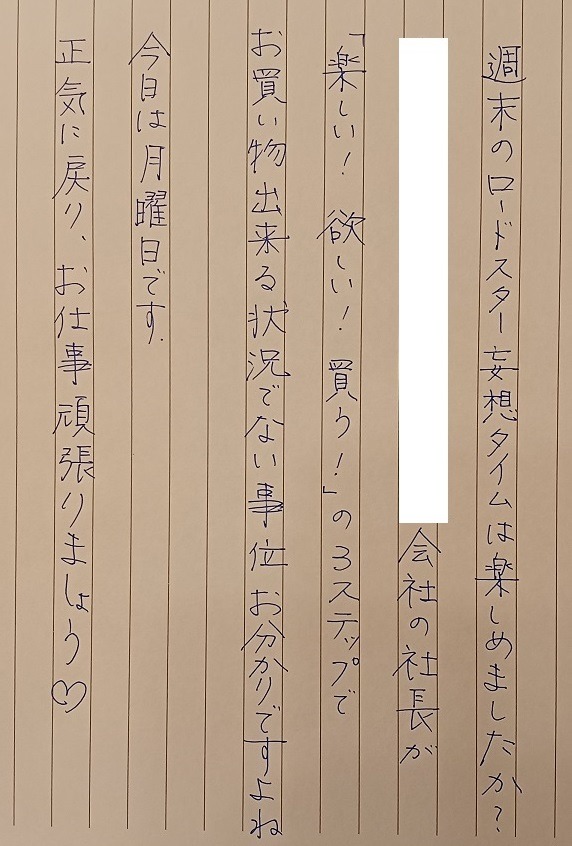 週末のロードスター妄想タイムは楽しめましたか?
会社の社長が
「楽しい! 欲しい! 買う!」の3ステップで
お買い物出来る状況でない事位 お分かりですよね
今日は月曜日です.
正気に戻り、お仕事頑張りましょう♡